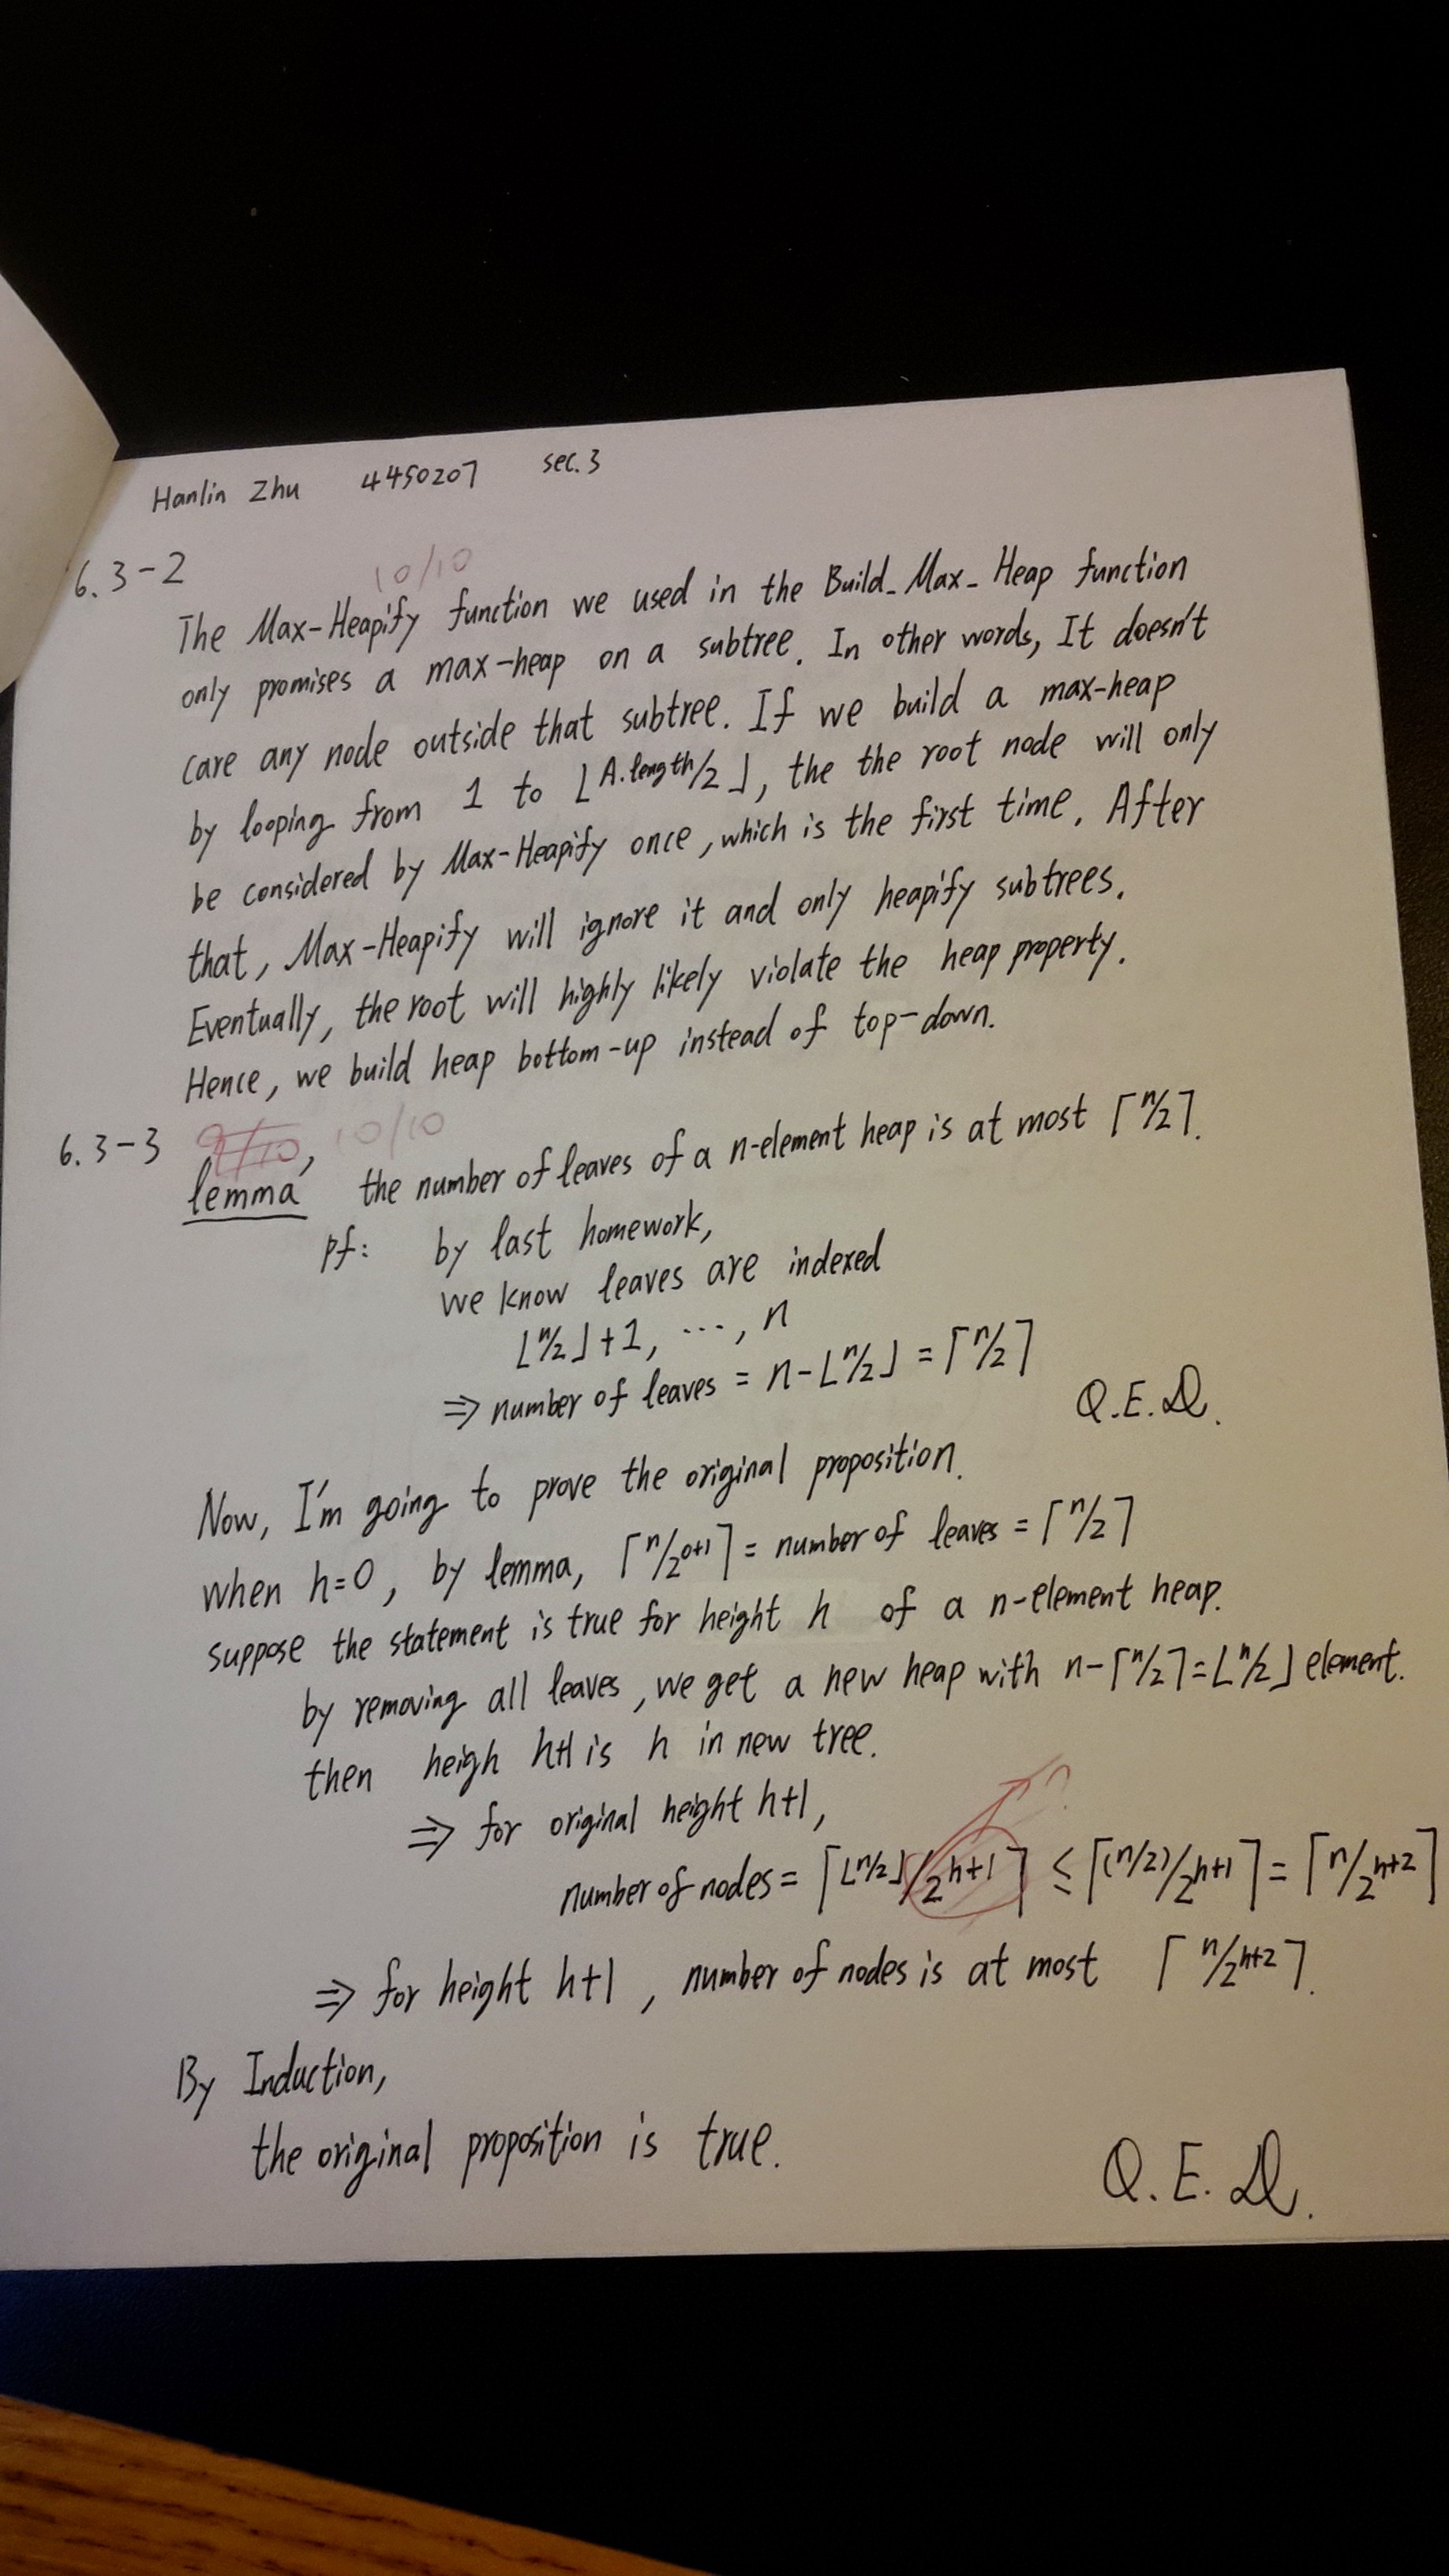 Hanlin Zhu 4450207 sec.3
6.3-2 10/10
The Max-Heapify function we used in the Build_Max_Heap function
only promises a max-heap on a subtree. In other words, It doesn't
care any node outside that subtree. If we build a max-heap
by looping from 1 to ⌊A.length/2⌋, the the root node will only
be considered by Max-Heapify once, which is the first time. After
that, Max-Heapify will ignore it and only heapify subtrees.
Eventually, the root will highly likely violate the heap property.
Hence, we build heap bottom-up instead of top-down.
6.3-3 9/10, 10/10
lemma the number of leaves of a n-element heap is at most ⌈n/2⌉.
pf: by last homework,
we know leaves are indexed
⌊n/2⌋+1, ..., n
⇒ number of leaves = n-⌊n/2⌋ = ⌈n/2⌉
Q.E.D.
Now, I'm going to prove the original proposition.
when h=0, by lemma, ⌈n/2^0+1⌉ = number of leaves = ⌈n/2⌉
suppose the statement is true for height h of a n-element heap.
by removing all leaves, we get a new heap with n-⌈n/2⌉=⌊n/2⌋ element.
then heigh h+1 is h in new tree.
⇒ for original height h+1,
?
number of nodes = ⌈⌊n/2⌋/2^h+1⌉ ≤ ⌈(n/2)/2^h+1⌉ = ⌈n/2^h+2⌉
⇒ for height h+1, number of nodes is at most ⌈n/2^h+2⌉.
By Induction,
the original proposition is true.
Q.E.D.